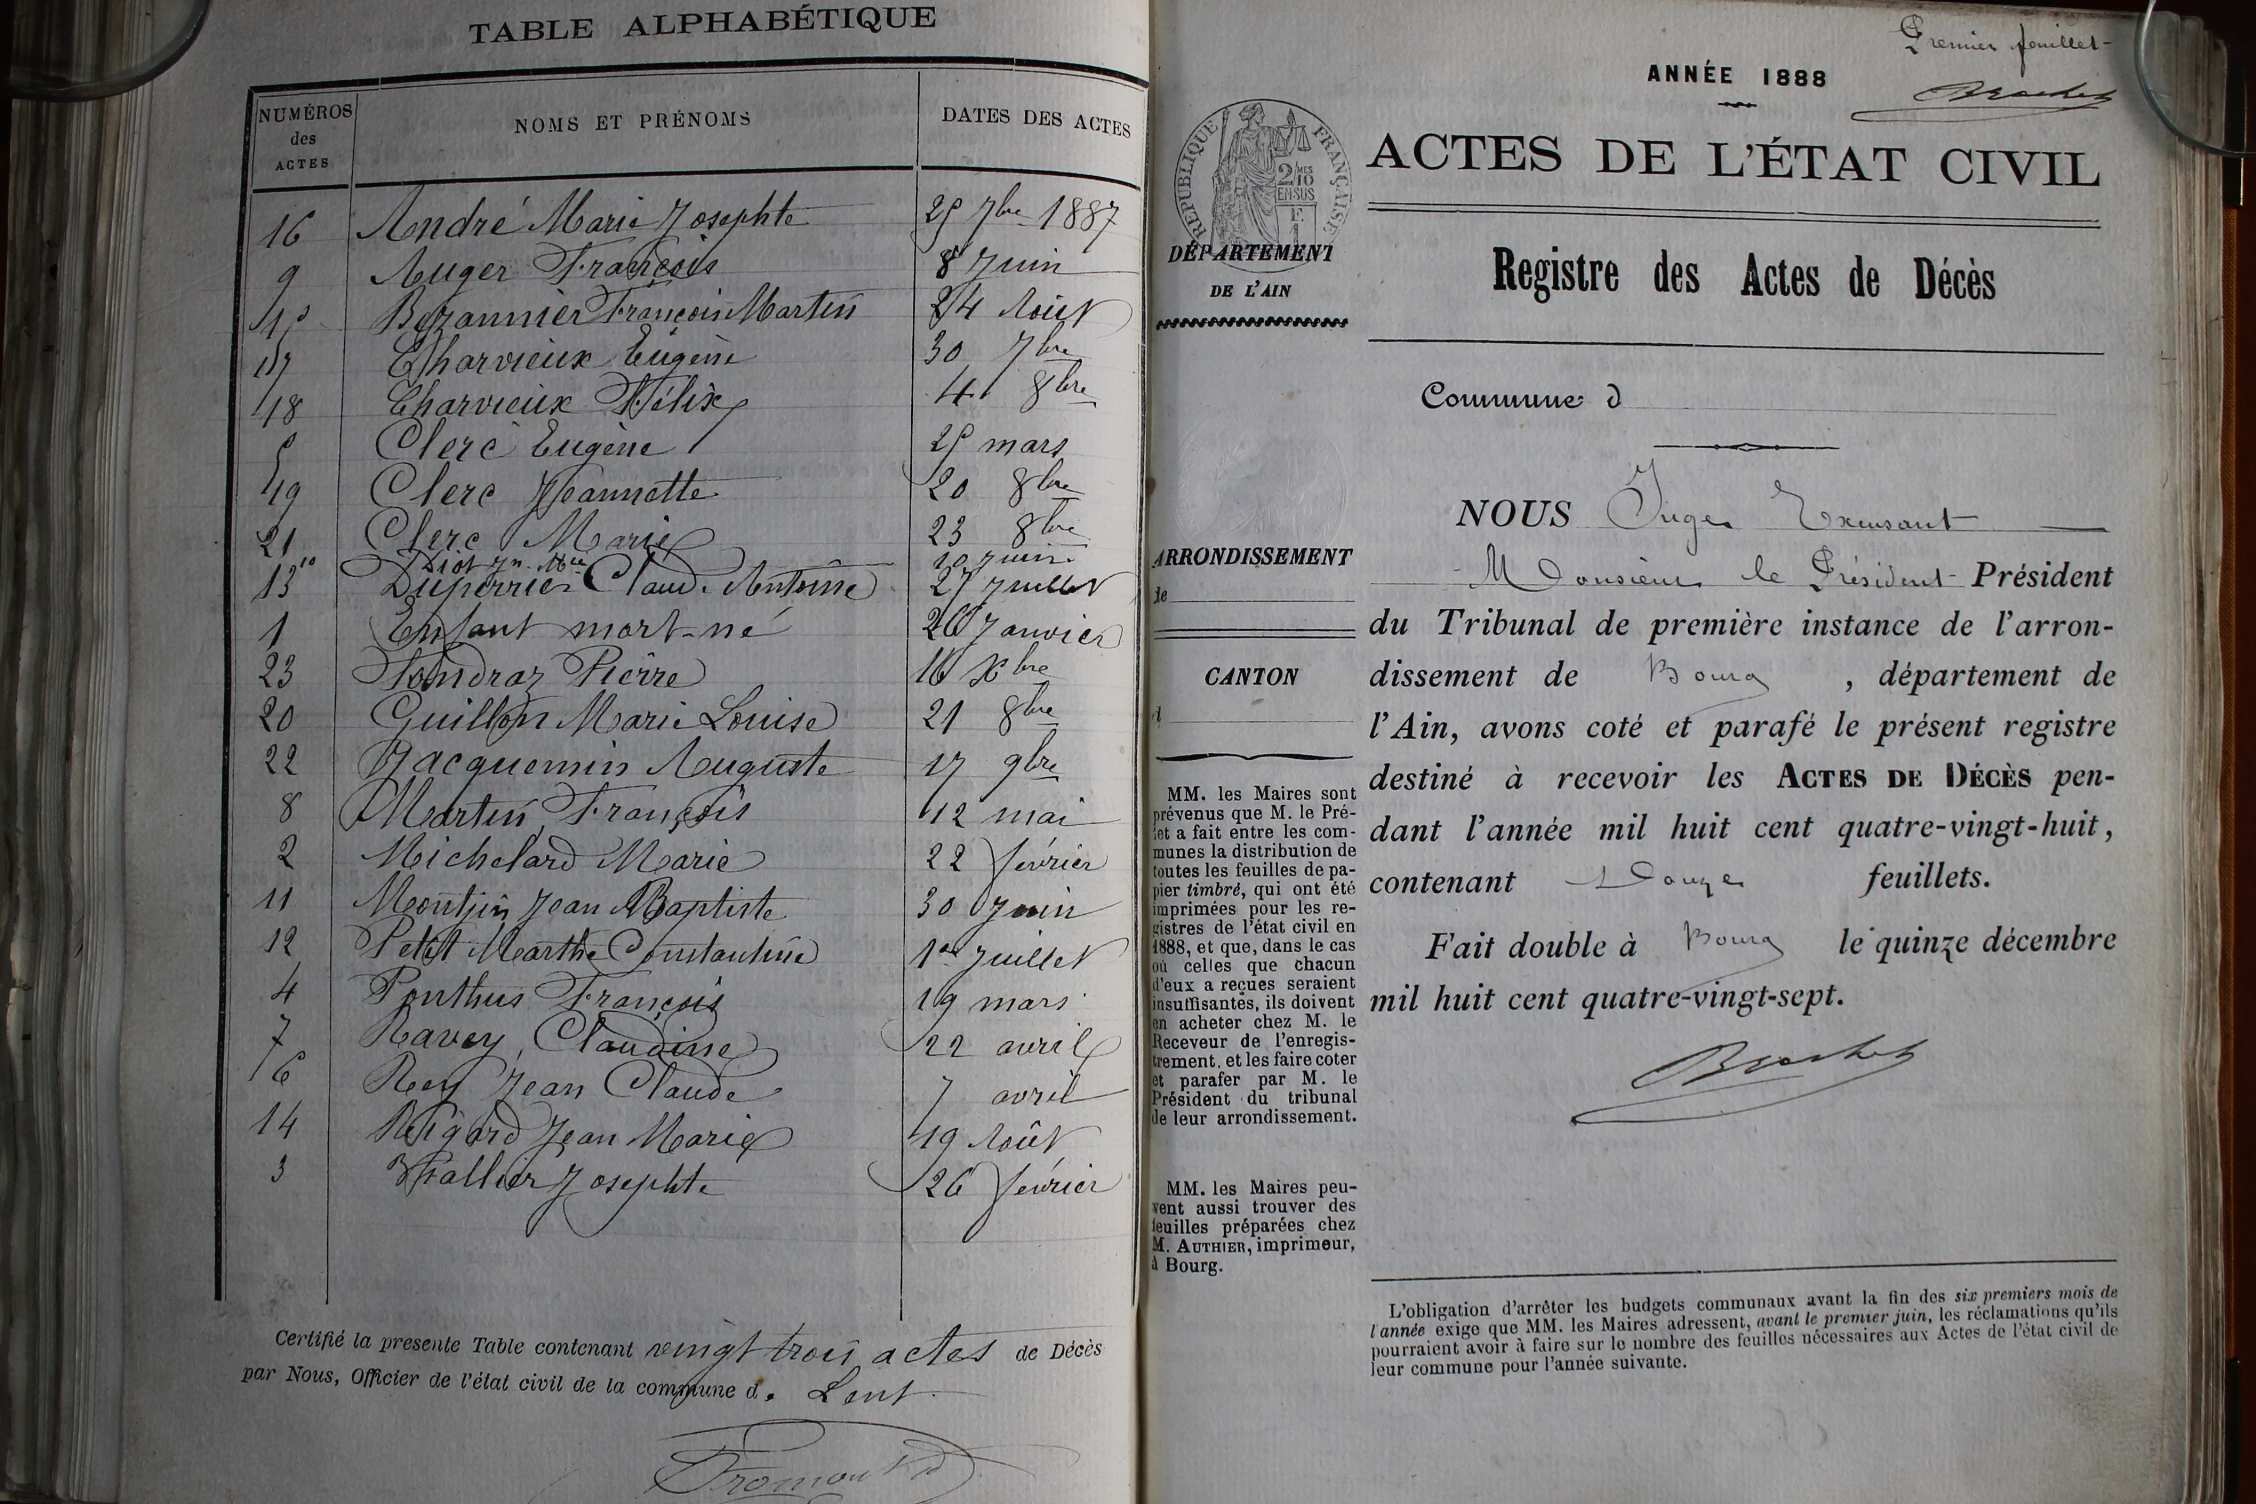 TABLE ALPHABÉTIQUE
NUMÉROS des ACTES NOMS ET PRÉNOMS DATES DES ACTES
16 André Marie Josephte 25 7bre 1887
9 Auger François 8 Juin
15 Bezannier François Martin 24 Août
17 Charvieux Eugène 30 7bre
18 Charvieux Félix 4 8bre
5 Clerc Eugène 25 mars
19 Clerc Jeannette 20 8bre
21 Clerc Marie 23 8bre
10 Diot Jn. Mie 10 Juin
13 Duperrier Claude Antoine 27 Juillet
1 Enfant mort-né 26 Janvier
23 Fondraz Pierre 16 Xbre
20 Guillon Marie Louise 21 8bre
22 Jacquemin Auguste 17 9bre
8 Martin François 12 mai
2 Michelard Marie 22 février
11 Montjin Jean Baptiste 30 Juin
12 Petit Marthe Constantine 1er Juillet
4 Ponthus François 19 mars
7 Ravey Claudine 22 avril
6 Rey Jean Claude 7 avril
14 Rigard Jean Marie 19 Août
3 Vallier Josephte 26 février
Certifié la presente Table contenant vingt trois actes de Décès
par Nous, Officier de l'état civil de la commune de Lent
Premier feuillet
ANNÉE 1888
RÉPUBLIQUE FRANÇAISE
2 MES 10
EN SUS
ACTES DE L'ÉTAT CIVIL
DÉPARTEMENT
DE L'AIN
Registre des Actes de Décès
Commune d
NOUS Juge Excusant
Monsieur le Président Président
du Tribunal de première instance de l'arron-
dissement de Bourg, département de
l'Ain, avons coté et parafé le présent registre
destiné à recevoir les ACTES DE DÉCÈS pen-
dant l'année mil huit cent quatre-vingt-huit,
contenant Douze feuillets.
Fait double à Bourg le quinze décembre
mil huit cent quatre-vingt-sept.
ARRONDISSEMENT
de
CANTON
d
MM. les Maires sont
prévenus que M. le Pré-
fet a fait entre les com-
munes la distribution de
toutes les feuilles de pa-
pier timbré, qui ont été
imprimées pour les re-
gistres de l'état civil en
1888, et que, dans le cas
où celles que chacun
d'eux a reçues seraient
insuffisantes, ils doivent
en acheter chez M. le
Receveur de l'enregis-
trement, et les faire coter
et parafer par M. le
Président du tribunal
de leur arrondissement.
MM. les Maires peu-
vent aussi trouver des
feuilles préparées chez
M. AUTHIER, imprimeur,
à Bourg.
L'obligation d'arrêter les budgets communaux avant la fin des six premiers mois de
l'année exige que MM. les Maires adressent, avant le premier juin, les réclamations qu'ils
pourraient avoir à faire sur le nombre des feuilles nécessaires aux Actes de l'état civil de
leur commune pour l'année suivante.